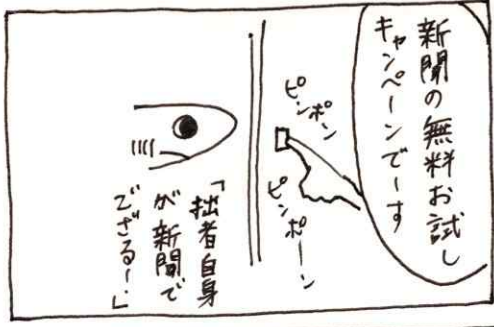 新聞の無料お試し
キャンペーンでーす
ピンポン
ピンポーン
「拙者自身
が新聞で
ござる〜!」